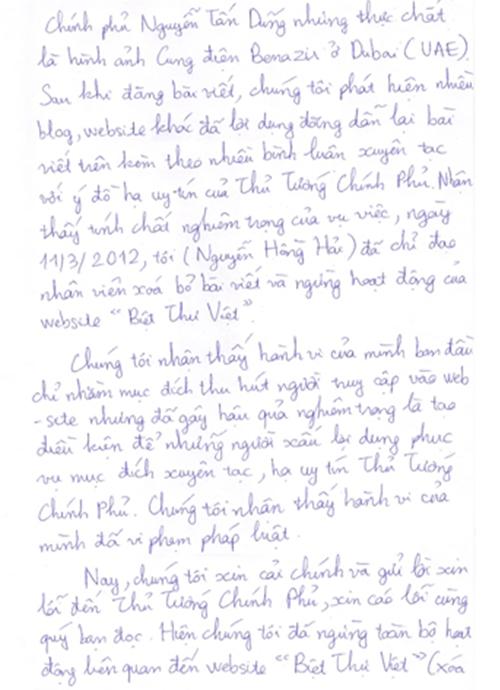 Chính phủ Nguyễn Tấn Dũng nhưng thực chất
là hình ảnh Cung điện Benazir ở Dubai (UAE).
Sau khi đăng bài viết, chúng tôi phát hiện nhiều
blog, website khác đã lợi dụng đăng dẫn lại bài
viết trên kèm theo nhiều bình luận xuyên tạc
với ý đồ hạ uy tín của Thủ Tướng Chính Phủ. Nhận
thấy tính chất nghiêm trọng của vụ việc, ngày
11/3/2012, tôi (Nguyễn Hồng Hải) đã chỉ đạo
nhân viên xoá bỏ bài viết và ngừng hoạt động của
website "Biệt Thự Việt".
Chúng tôi nhận thấy hành vi của mình ban đầu
chỉ nhằm mục đích thu hút người truy cập vào web
-site nhưng đã gây hậu quả nghiêm trọng là tạo
điều kiện để những người xấu lợi dụng phục
vụ mục đích xuyên tạc, hạ uy tín Thủ Tướng
Chính Phủ. Chúng tôi nhận thấy hành vi của
mình đã vi phạm pháp luật.
Nay, chúng tôi xin cải chính và gửi lời xin
lỗi đến Thủ Tướng Chính Phủ, xin cáo lỗi cùng
quý bạn đọc. Hiện chúng tôi đã ngừng toàn bộ hoạt
động liên quan đến website "Biệt Thự Việt" (xóa